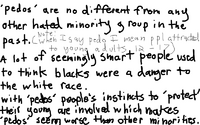 'pedos' are no different from any
other hated minority group in the
past. (NOTE when I say pedo I mean ppl attracted
to young adults 12-17)
A lot of seemingly smart people used
to think blacks were a danger to
the white race.
with 'pedos' people's instincts to 'protect'
their young are involved which makes
'pedos' seem worse than other minorities.